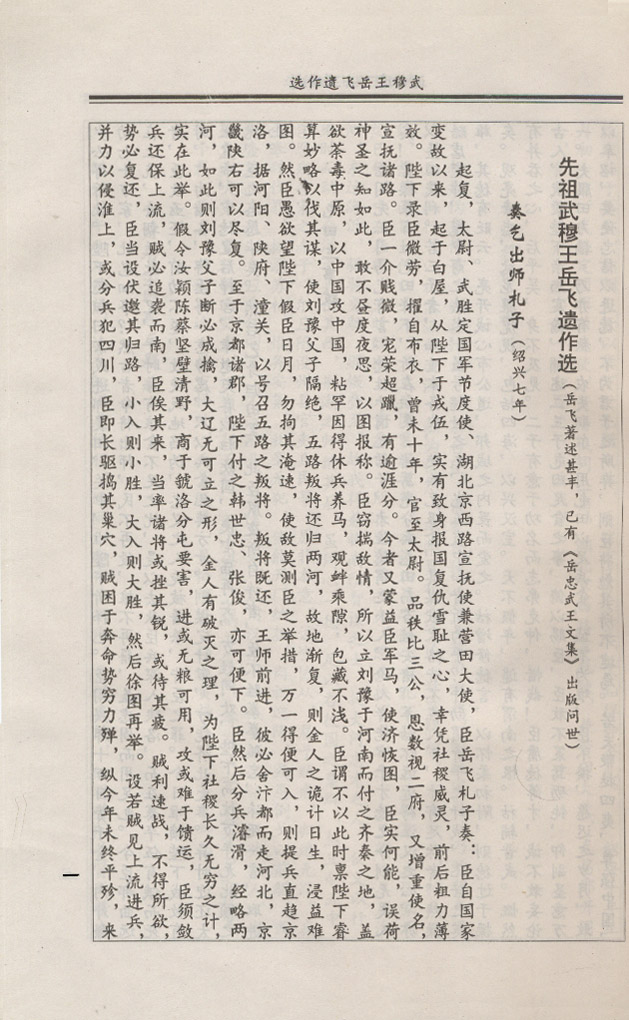 武穆王岳飞遗作选
先祖武穆王岳飞遗作选（岳飞著述甚丰，已有《岳忠武王文集》出版问世）
奏乞出师札子（绍兴七年）
起复，太尉、武胜定国军节度使、湖北京西路宣抚使兼营田大使，臣岳飞札子奏：臣自国家
变故以来，起于白屋，从陛下于戎伍，实有致身报国复仇雪耻之心，幸凭社稷威灵，前后粗力薄
效。陛下录臣微劳，擢自布衣，曾未十年，官至太尉。品秩比三公，恩数视二府，又增重使名，
宣抚诸路。臣一介贱微，宠荣超躐，有逾涯分。今者又蒙益臣军马，使济恢图，臣实何能，误荷
神圣之知如此，敢不昼度夜思，以图报称。臣窃揣敌情，所以立刘豫于河南而付之齐秦之地，盖
欲荼毒中原，以中国攻中国，粘罕因得休兵养马，观衅乘隙，包藏不浅。臣谓不以此时禀陛下睿
算妙略以伐其谋，使刘豫父子隔绝，五路叛将还归两河，故地渐复，则金人之诡计日生，浸益难
图。然臣愚欲望陛下假臣日月，勿拘其淹速，使敌莫测臣之举措，万一得便可入，则提兵直趋京
洛，据河阳、陕府、潼关，以号召五路之叛将。叛将既还，王师前进，彼必舍汴都而走河北，京
畿陕右可以尽复。至于京都诸郡，陛下付之韩世忠、张俊，亦可便下。臣然后分兵濬滑，经略两
河，如此则刘豫父子断必成擒，大辽无可立之形，金人有破灭之理，为陛下社稷长久无穷之计，
实在此举。假令汝颖陈蔡坚壁清野，商于虢洛分屯要害，进或无粮可用，攻或难于馈运，臣须敛
兵还保上流，贼必追袭而南，臣俟其来，当率诸将或挫其锐，或待其疲。贼利速战，不得所欲，
势必复还，臣当设伏邀其归路，小入则小胜，大入则大胜，然后徐图再举。设若贼见上流进兵，
并力以侵淮上，或分兵犯四川，臣即长驱捣其巢穴，贼困于奔命势穷力殚，纵今年未终平殄，来